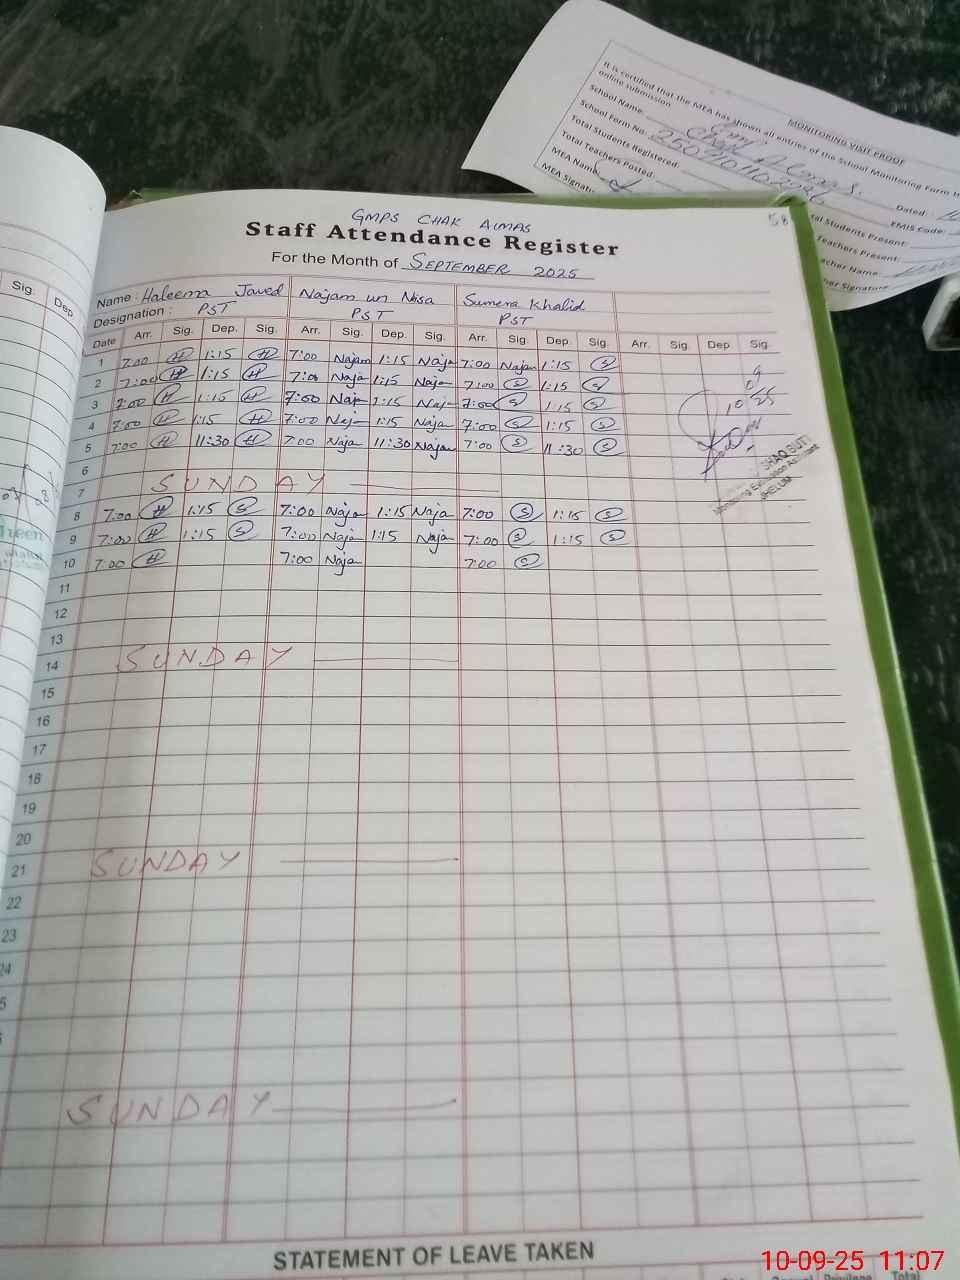 MONITORING VISIT PROOF
It is certified that the MEA has shown all entries of the School Monitoring Form
online submission
School Name:
Chak Almas
School Form No.
Dated:
Total Students Registered:
EMIS Code:
Total Teachers Posted:
Students Present:
MEA Name
Teachers Present:
MEA Signatu
Name:
Signature
58
GMPS CHAK ALMAS
Staff Attendance Register
For the Month of SEPTEMBER 2025
Sig. Dep
Name: Haleema Javed Najam un Nisa Sumera Khalid
Designation: PST PST PST
Date Arr. Sig. Dep. Sig. Arr. Sig. Dep. Sig. Arr. Sig. Dep. Sig. Arr. Sig. Dep. Sig.
1 7:00 H 1:15 H 7:00 Najam 1:15 Naja 7:00 Najam 1:15 S
2 7:00 H 1:15 H 7:00 Naja 1:15 Naja 7:00 S 1:15 S
3 7:00 H 1:15 H 7:00 Naja 1:15 Naja 7:00 S 1:15 S
4 7:00 H 1:15 H 7:00 Naja 1:15 Naja 7:00 S 1:15 S
5 7:00 H 11:30 H 7:00 Naja 11:30 Najam 7:00 S 11:30 S
6
7 SUNDAY
8 7:00 H 1:15 S 7:00 Naja 1:15 Naja 7:00 S 1:15 S
9 7:00 H 1:15 S 7:00 Naja 1:15 Naja 7:00 S 1:15 S
10 7:00 H 7:00 Naja 7:00 S
11
12
13
14 SUNDAY
15
16
17
18
19
20
21 SUNDAY
22
23
24
SUNDAY
BUTT
JHELUM
STATEMENT OF LEAVE TAKEN
10-09-25 11:07
Total